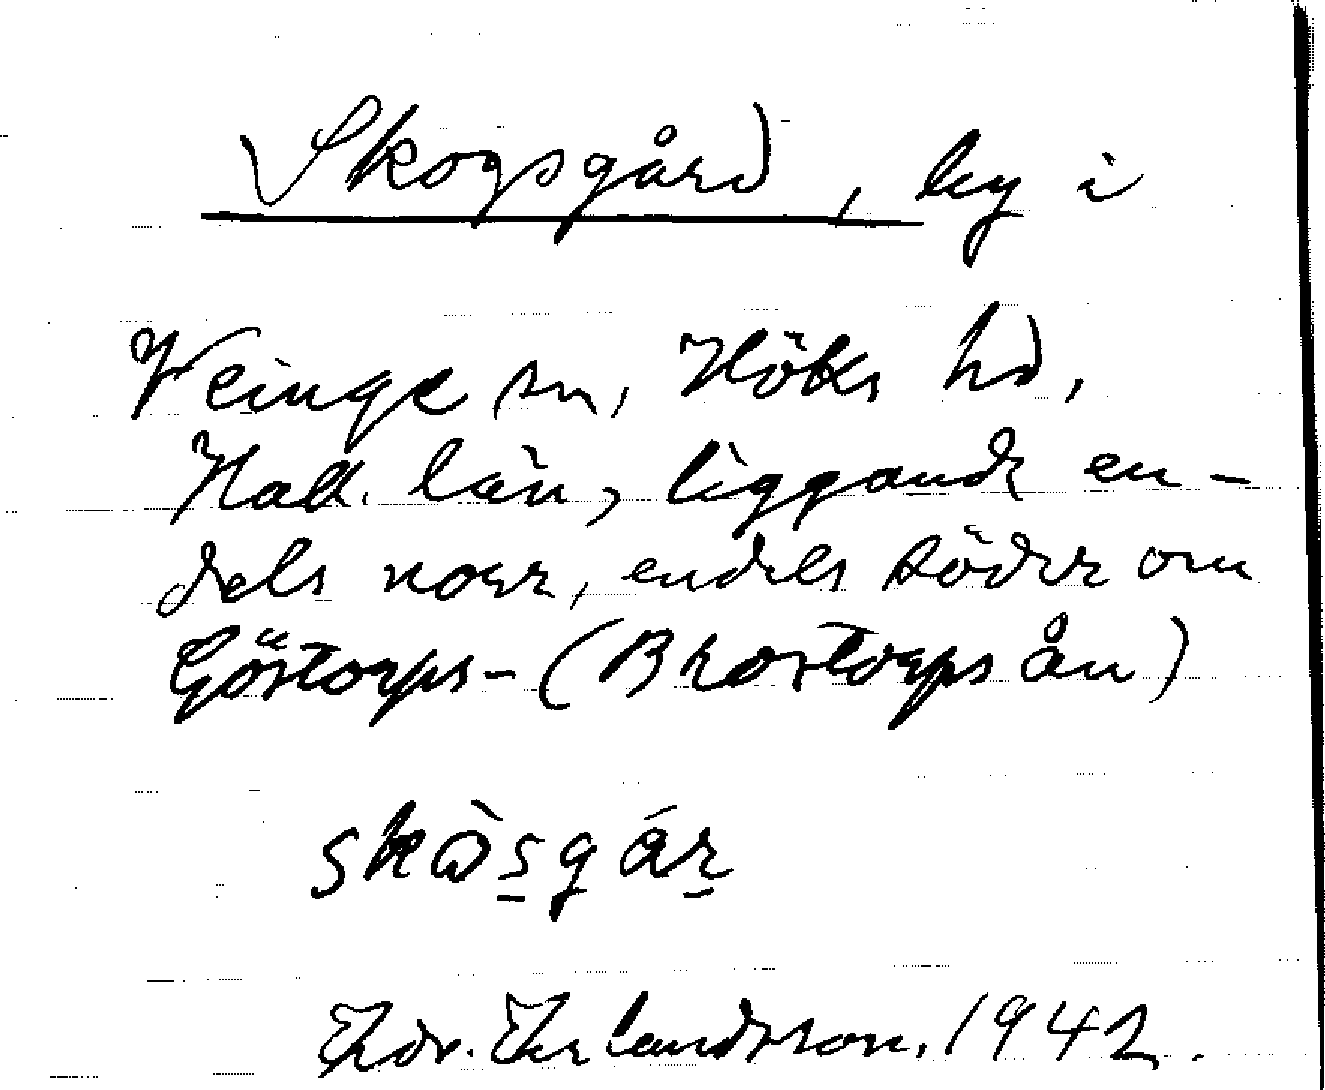 Skogsgård, by i
Veinge sn, Höks hd,
Hall. län, liggande en-
dels norr, endels söder om
Göstorps- (Brostorpsån)
Edv. Erlandsson. 1942.